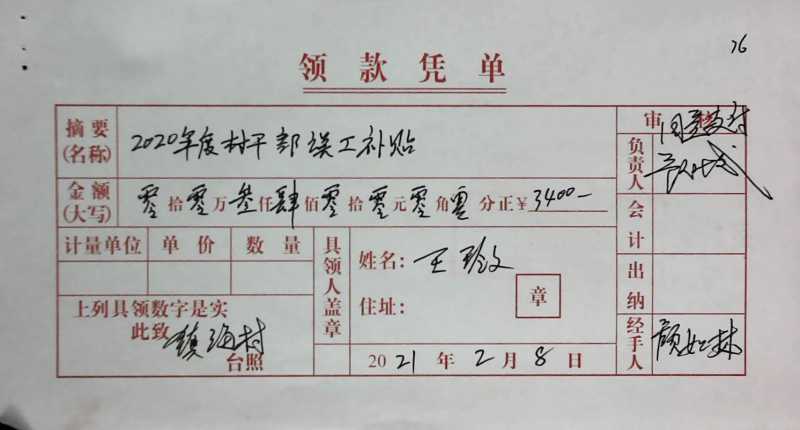 26
领款凭单
摘要
(名称)
2020年度村干部误工补贴
审
同意支付
负责人
金额
(大写)
零拾零万叁仟肆佰零拾零元零角零分正¥3400—
会计
计量单位 单价 数量
具领人盖章
姓名:王
住址:
章
出纳
上列具领数字是实
此致
镇海村
台照
2021年2月8日
经手人
顾如林